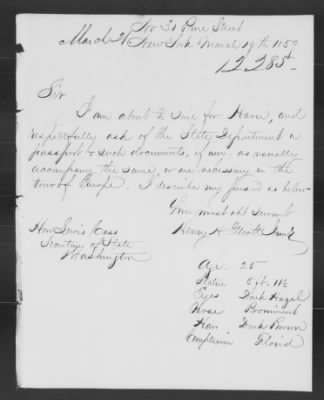 No 31 Pine Street
March 21 New York March 19th 1859
12285
Sir
I am about to Sail for Havre, and
respectfully ask of the State Department a
passport & such documents, if any, as usually
accompany the same, or are necessary in the
tour of Europe. I describe my person as below
Your most obt Servant
Henry H
Hon Lewis Cass
Secretary of State
Washington
Age 25
Stature 5 ft. 11½
Eyes Dark Hazel
Nose Prominent
Hair Dark Brown
Complexion Florid